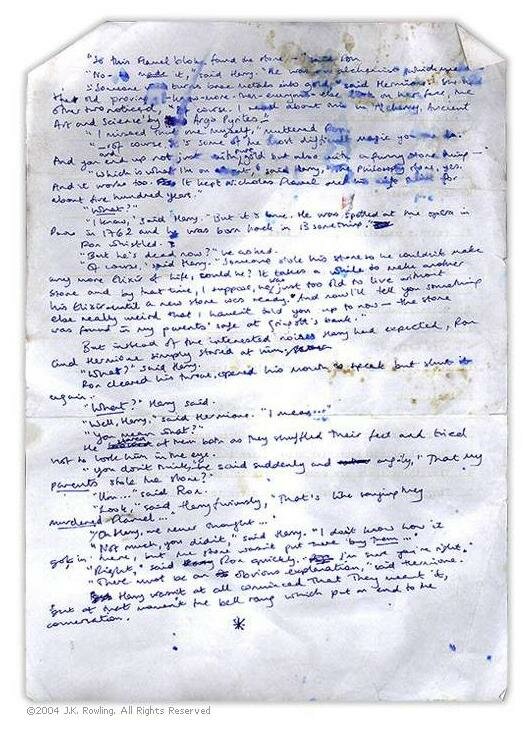 "So this Flamel bloke found the stone –" said Ron.
"No – made it," said Harry. "He was an alchemist, which means
someone who turns base metals into gold," said Hermione.
that old
other two noticed. "Of course. I read about him in Alchemy, Ancient
Art and Science by Argo Pyrites –"
"I missed that one myself," muttered Ron.
"– of course, it's some of the most difficult magic you can do.
And you end up not just with pure gold but also with a funny stone thing –"
"Which is what I'm on about," said Harry, "the Philosopher's Stone, yes.
And it works too. It kept Nicholas Flamel and his wife alive for
about five hundred years."
"What?"
"I know," said Harry. "But it's true. He was spotted at the opera in
Paris in 1762 and he was born back in 13 something."
Ron whistled.
"But he's dead now?" he asked.
"Of course," said Harry. "Someone stole his stone so he couldn't make
any more Elixir of Life, could he? It takes a while to make another
stone and by that time, I suppose, he was just too old to live without
his Elixir until a new stone was ready. And now I'll tell you something
else really weird that I haven't told you up to now – the stone
was found in my parents' safe at Gringotts bank."
But instead of the interested noises Harry had expected, Ron
and Hermione simply stared at him.
"What?" said Harry.
Ron cleared his throat, opened his mouth to speak but shut it
again.
"What?" Harry said.
"Well, Harry," said Hermione. "I mean..."
"You mean what?"
He stared at them both as they shuffled their feet and tried
not to look him in the eye.
"You don't think," he said suddenly and angrily, "That my
parents stole the stone?"
"Um..." said Ron.
"Look," said Harry furiously, "That's like saying they
murdered Flamel..."
"Oh Harry, we never thought..."
"Not much, you didn't," said Harry. "I don't know how it
got in there, but the stone wasn't put there by them..."
"Right," said Ron quickly. "I'm sure you're right."
"There must be an obvious explanation," said Hermione.
Harry wasn't at all convinced that they meant it,
but at that moment the bell rang which put an end to the
conversation.
*
©2004 J.K. Rowling. All Rights Reserved